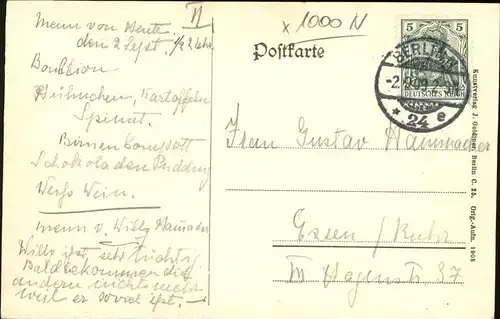 II
x 1000 N
Menu von Heute
den 2 Sept. 1/2 2 Uhr
Bouillion
Hühnchen, Kartoffeln
Spinat.
Birnen Compott
Schokoladen Pudding
Weiss Wein.
menu v. Willy
Willy ist sehr tüchtig
Bald bekommen die
andern nichts mehr
weil er soviel ist.
Postkarte
5 5
DEUTSCHES REICH
BERLIN
* 24 e
Frau Gustav
Essen / Ruhr
Hagenstr 37
Kunstverlag J. Goldiner, Berlin C. 25. Orig.-Aufn. 1908